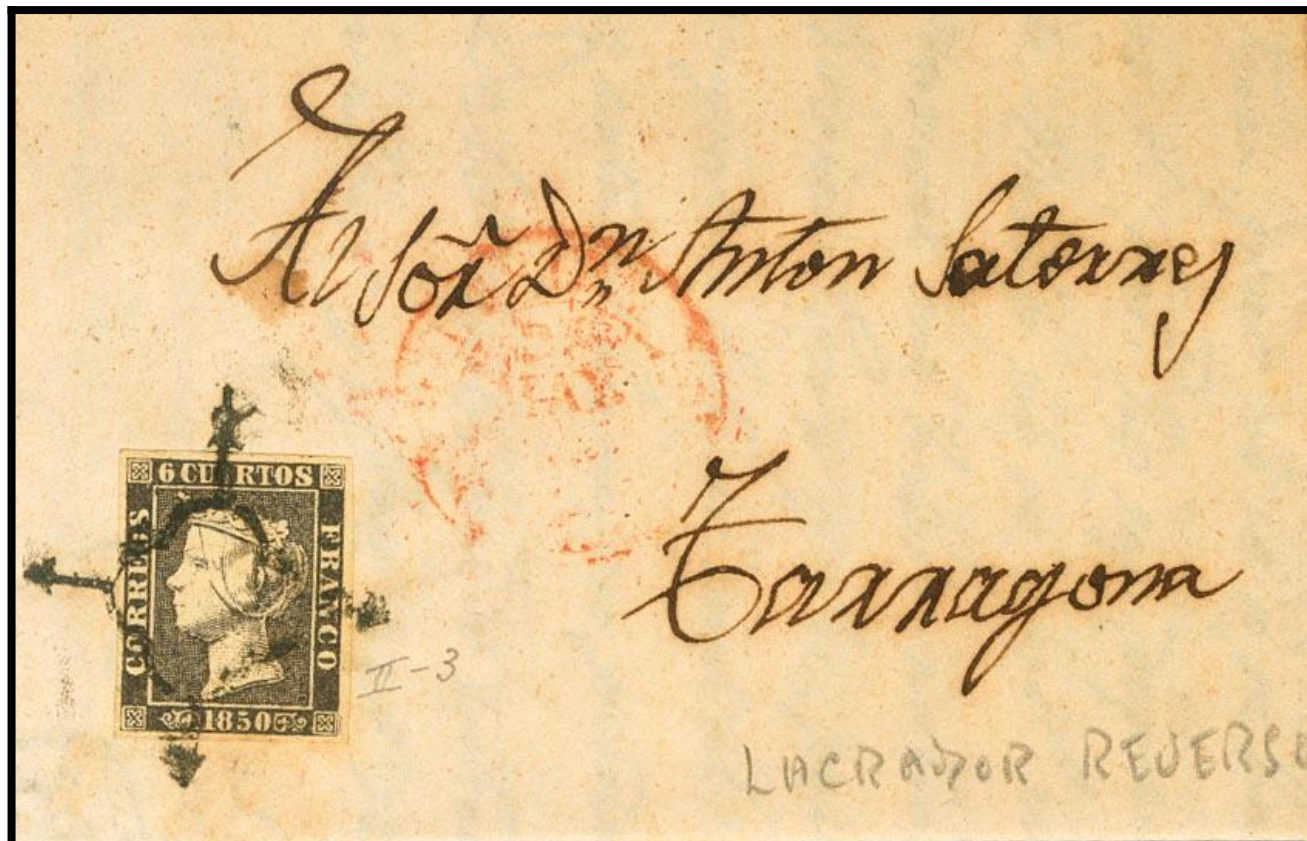 Al Sor̃ Dn Anton Saterrey
Tarragona
6 CUARTOS
CORREOS
FRANCO
1850
II-3
LACRADOR REVERSO